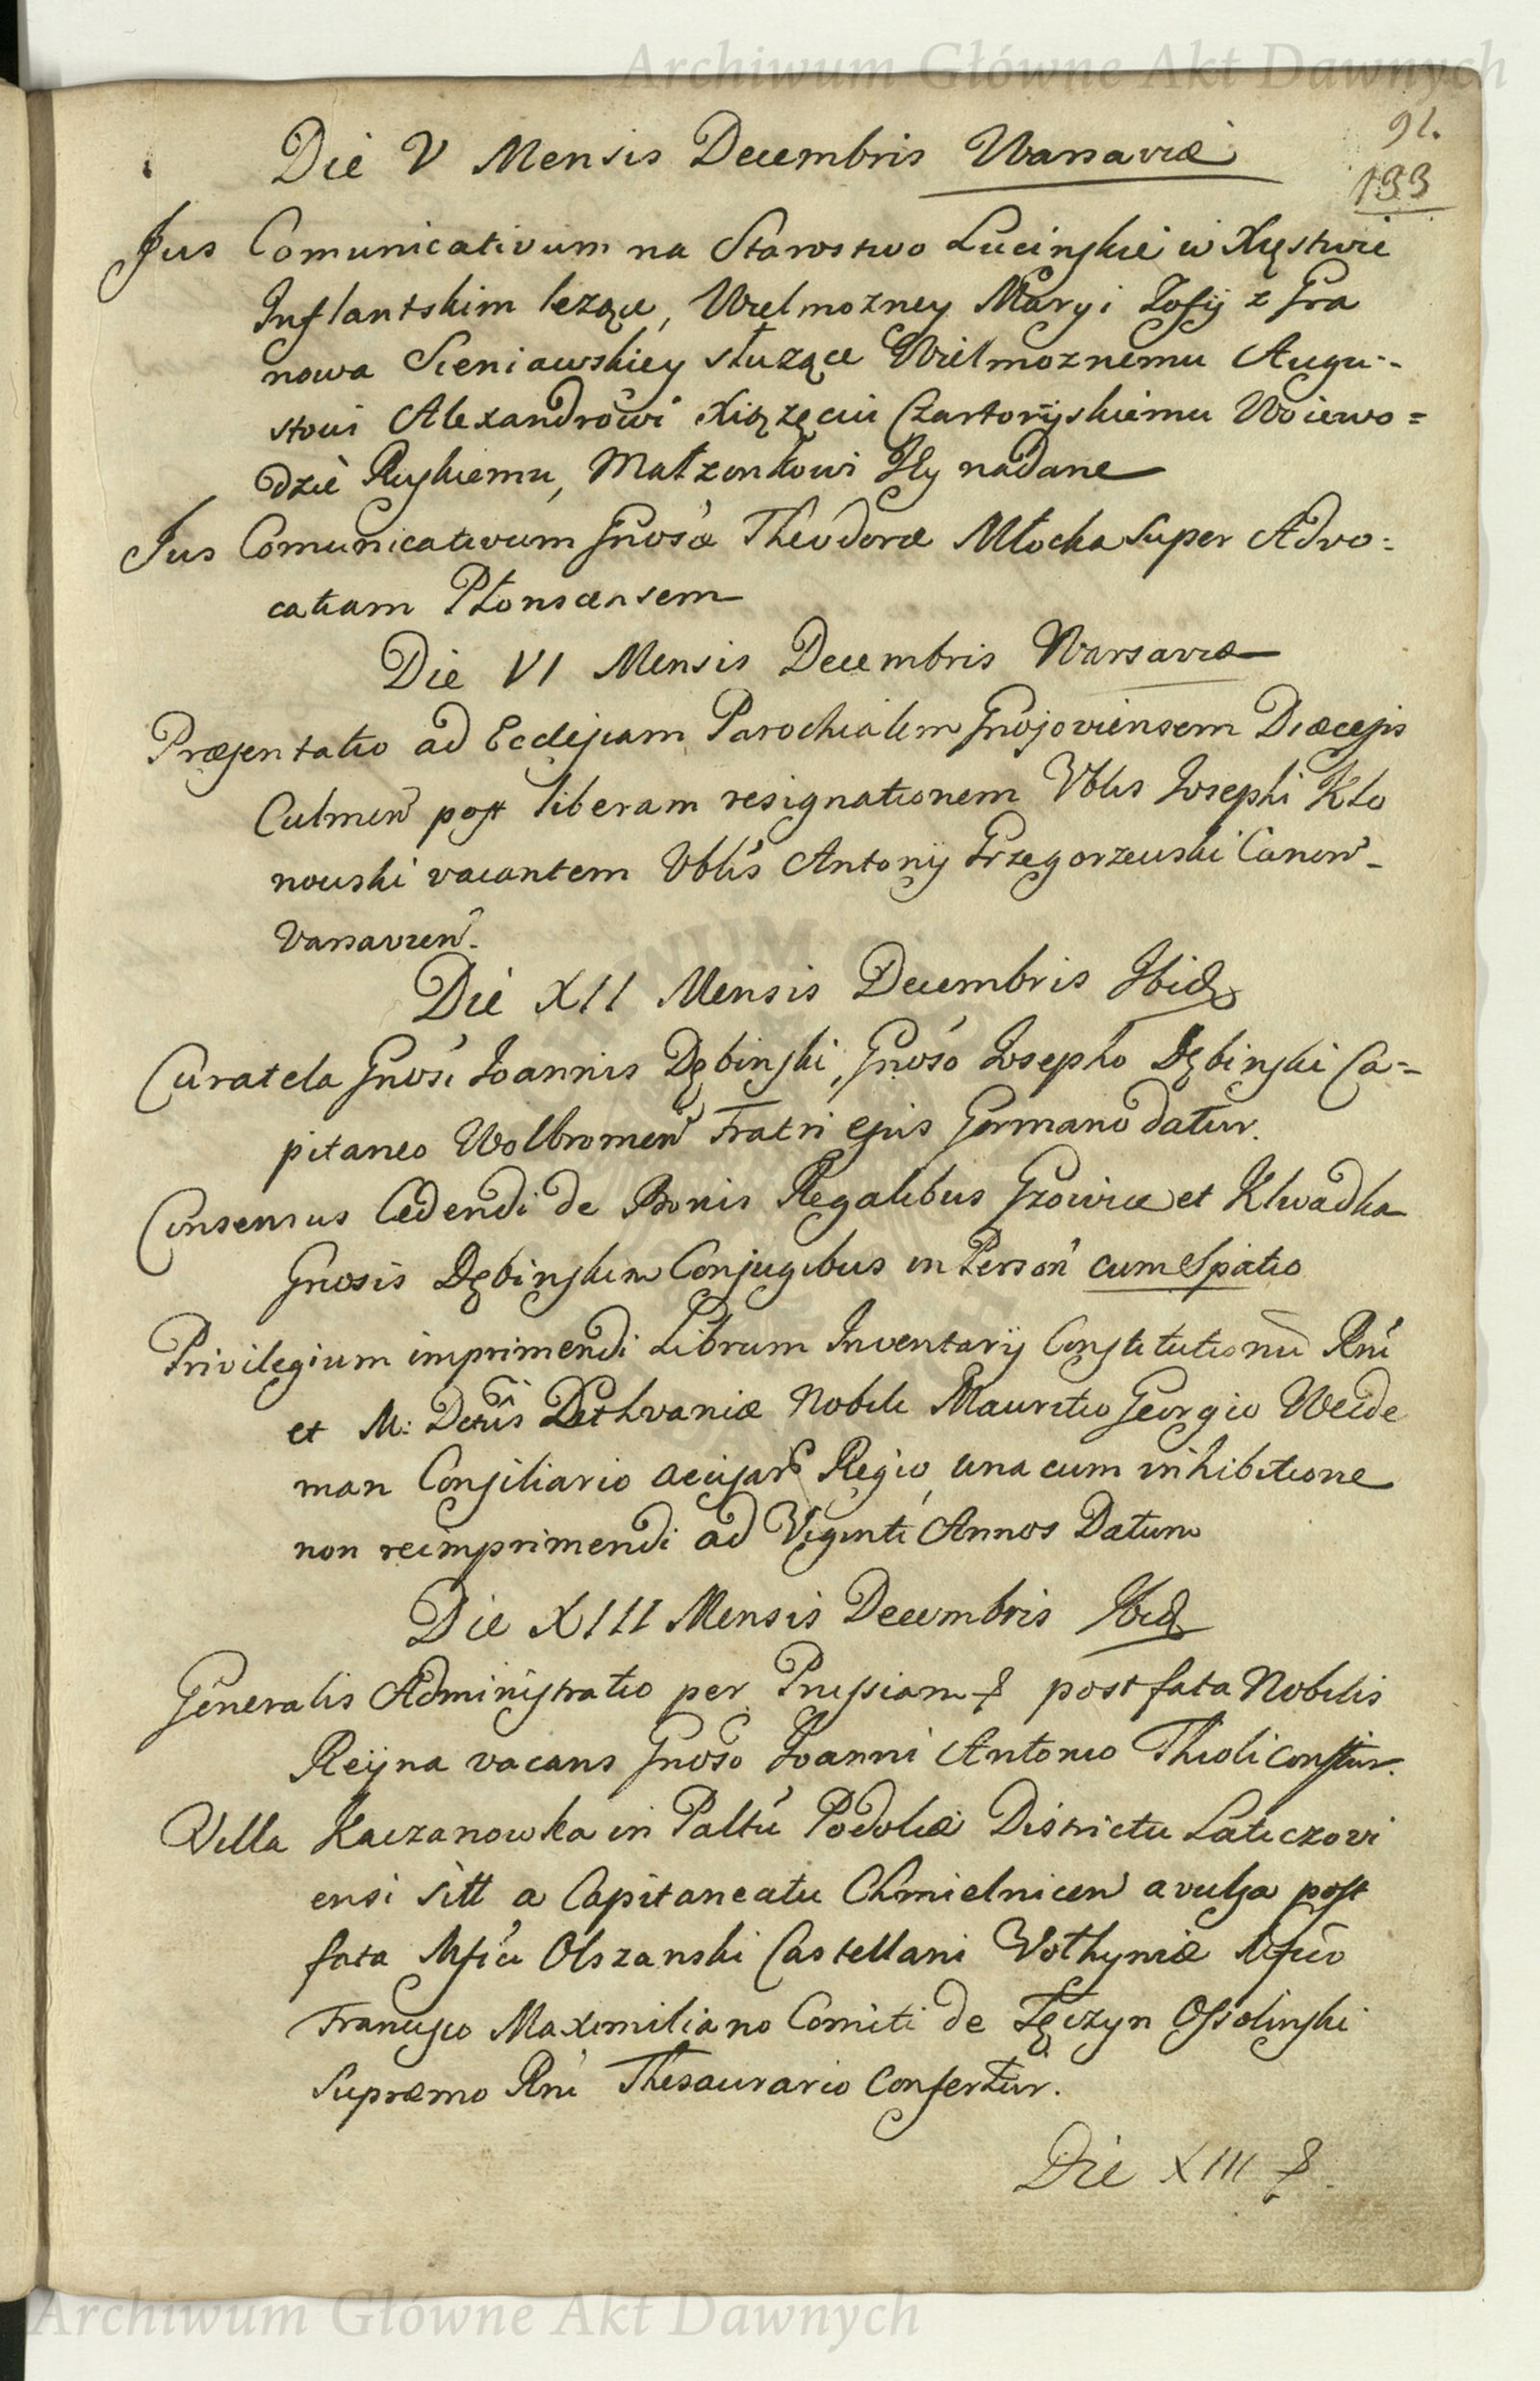 Archiwum Główne Akt Dawnych
91.
133
Die V Mensis Decembris Warsaviæ
Jus Comunicativum na Starostwo Lucinskie w Xięstwie
Inflantskim lezące, Wielmozney Maryi Zofij z Gra
nowa Sieniawskiey słuzące Wielmoznemu Augu-
stowi Alexandrowi Xiązęciu Czartoryskiemu Woiewo=
dzie Ruskiemu, Małzonkowi Jey nadane
Jus Comunicativum Gnosæ Theodoræ Młocka super Advo:
catiam Płonscensem
Die VI Mensis Decembris Warsaviæ
Præsentatio ad Ecclesiam Parochialem Gnojoviensem Diæcesis
Culmen post liberam resignationem Vblis Josephi Kło
nowski vacantem Vblis Antonij Grzegorzewski Canon-
Varsavien.
Die XII Mensis Decembris Ibid
Curatela Gnosi Joannis Dębinski, Gnoso Josepho Dębinski Ca=
pitaneo Wolbromen Fratri ejus Germano datur.
Consensus Cedendi de Bonis Regalibus Gzowice et Klwadka
Gnosis Dębinskim Conjugibus in Person cum Spatio
Privilegium imprimendi Librum Inventarij Constitutionũ Rni
et M: Dctûs Lithvaniæ Nobili Mauritio Georgio Weide
man Consiliario Regio, una cum inhibitione
non reimprimendi ad Viginti Annos Datum
Die XIII Mensis Decembris Ibid
Generalis Administratio per Prussiam & post fata Nobilis
Reyna vacans Gnoso Joanni Antonio Thioli confertur.
Villa Kaczanowka in Paltu Podoliæ Districtu Laticzovi
ensi sitt a Capitaneatu Chmielnicen avulsa post
fata Mfici Olszanski Castellani Wołhyniæ Mfico
Francisco Maximiliano Comiti de Tęczyn Ossolinski
Supræmo Rni Thesaurario Confertur.
Die XIII &.
Archiwum Główne Akt Dawnych